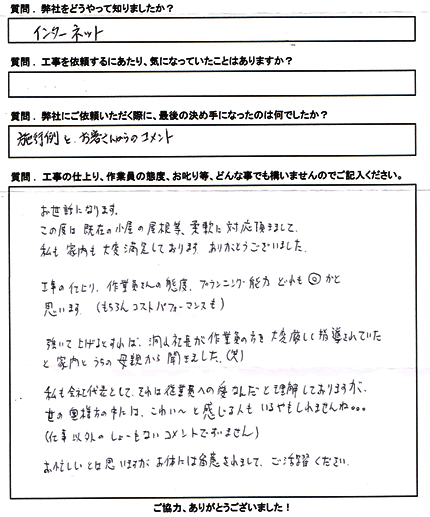 質問．弊社をどうやって知りましたか？
インターネット
質問．工事を依頼するにあたり、気になっていたことはありますか？
質問．弊社にご依頼いただく際に、最後の決め手になったのは何でしたか？
施行例と、お客さんからのコメント
質問．工事の仕上り、作業員の態度、お叱り等、どんな事でも構いませんのでご記入ください。
お世話になります。
この度は既存の小屋の屋根等、柔軟に対応頂きまして、
私も家内も大変満足しております。ありがとうございました。
工事の仕上り、作業員さんの態度、プランニング能力 どれも◎かと
思います。（もちろんコストパフォーマンスも）
強いて上げるとすれば、洞口社長が作業員の方を大変厳しく指導されていた
と家内とうちの母親から聞きました。（笑）
私も会社代表として、それは従業員への愛なんだと理解しておりますが、
世の奥様方の中には、こわい〜と感じる人もいるやもしれませんね。。。
（仕事以外のしょーもないコメントですいません）
お忙しいとは思いますが、お体には留意されまして、ご活躍ください。
ご協力、ありがとうございました！